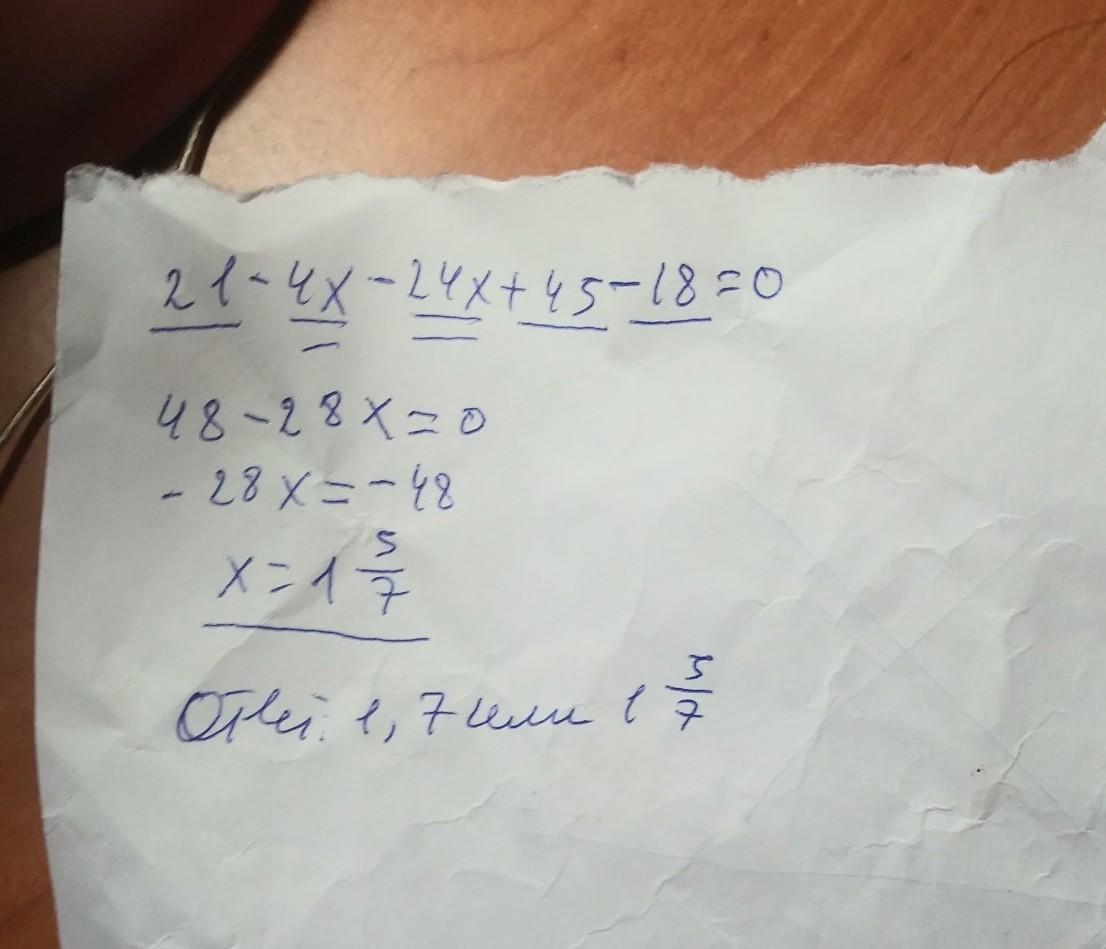 21-4x-24x+45-18=0
48-28x=0
-28x=-48
x=1 5/7
Ответ: 1,7 или 1 5/7